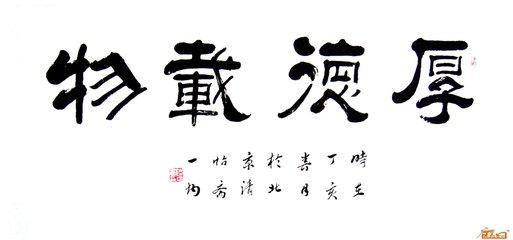 厚德載物
時在
丁亥
春月
於北
京清
怡齋
一灼